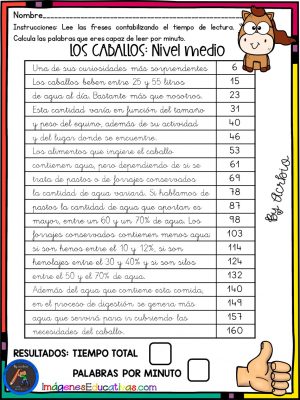 Nombre
Instrucciones: Lee las frases contabilizando el tiempo de lectura.
Calcula las palabras que eres capaz de leer por minuto.
LOS CABALLOS: Nivel medio
Una de sus curiosidades más sorprendentes 6
Los caballos beben entre 25 y 55 litros 15
de agua al día. Bastante más que nosotros. 23
Esta cantidad varía en función del tamaño 31
y peso del equino, además de su actividad 40
y del lugar donde se encuentre. 46
Los alimentos que ingiere el caballo 53
contienen agua, pero dependiendo de si se 61
trata de pastos o de forrajes conservados 69
la cantidad de agua variará. Si hablamos de 78
pastos la cantidad de agua que aportan es 87
mayor, entre un 60 y un 70% de agua. Los 98
forrajes conservados contienen menos agua: 103
si son henos entre el 10 y 12%, si son 114
henolajes entre el 30 y 40% y si son silos 124
entre el 50 y el 70% de agua. 132
Además del agua que contiene esta comida, 140
en el proceso de digestión se genera más 149
agua que servirá para ir cubriendo las 157
necesidades del caballo. 160
By Acrbio
RESULTADOS: TIEMPO TOTAL
PALABRAS POR MINUTO
ImágenesEducativas.com